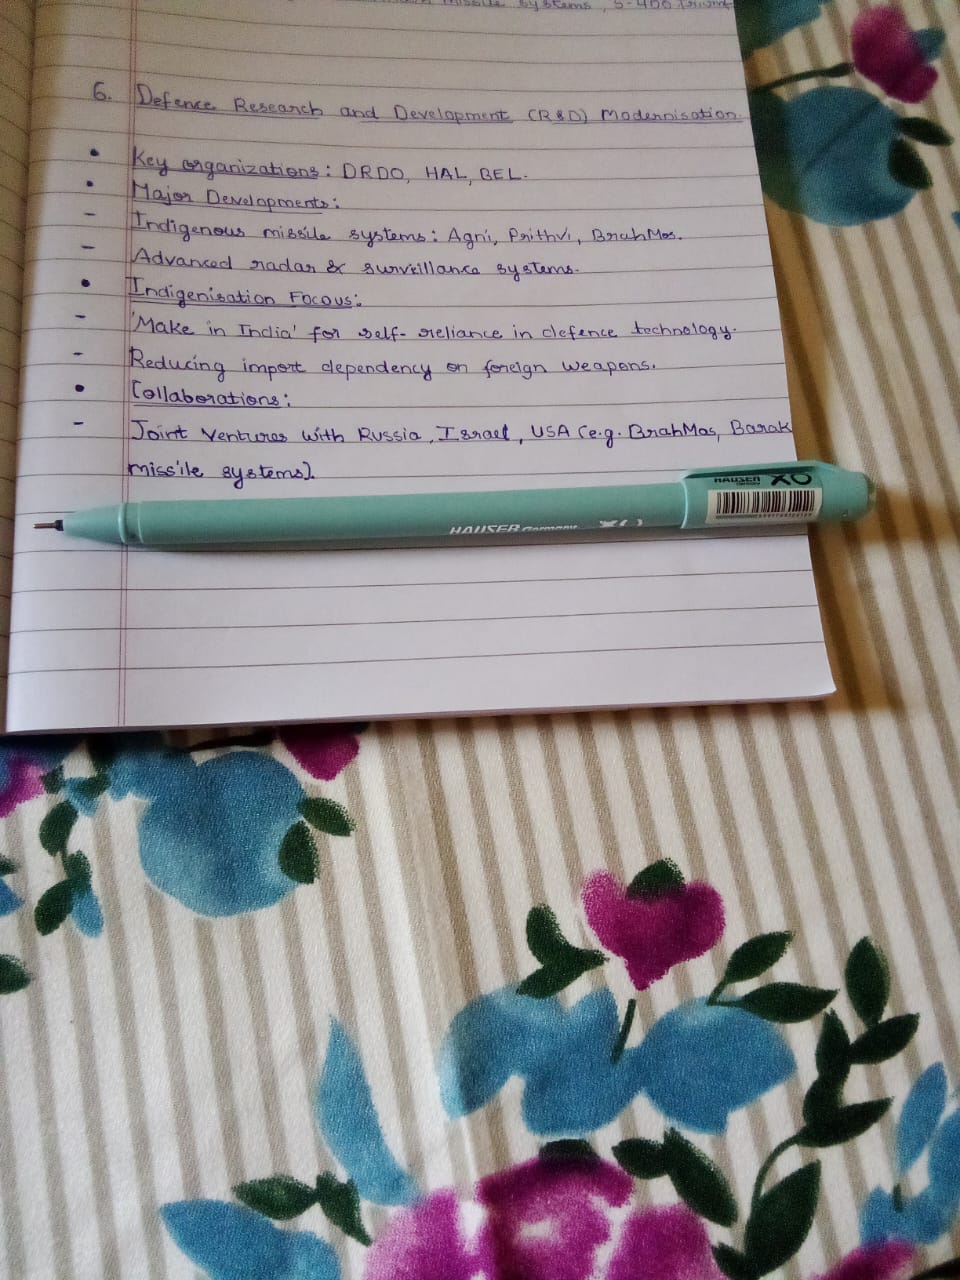 missile systems, S-400 Trium
6. Defence Research and Development (R&D) Modernisation.
• Key organizations: DRDO, HAL, BEL.
• Major Developments:
- Indigenous missile systems: Agni, Prithvi, BrahMos.
- Advanced radar & surveillance systems.
• Indigenisation Focous:
- 'Make in India' for self-reliance in defence technology.
- Reducing import dependency on foreign weapons.
• Collaborations:
- Joint Ventures with Russia, Israel, USA (e.g. BrahMos, Barak
missile systems).
HAUSER Germany XO
HAUSER Germany XO